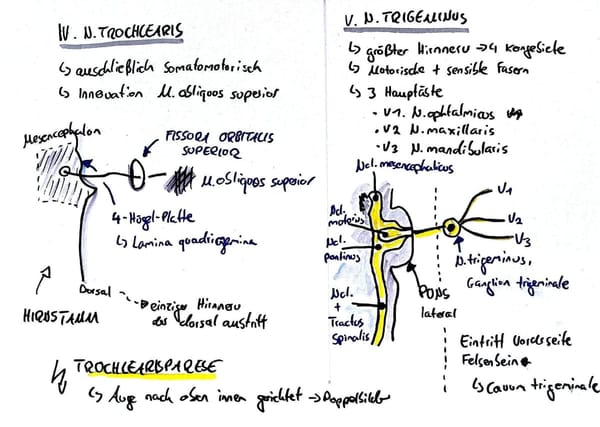 IV. N. TROCHLEARIS
↳ ausschließlich Somatomotorisch
↳ Innervation M. obliquos superior
Mesencephalon
FISSURA ORBITALIS
SUPERIOR
M. obliquos superior
4-Hügel-Platte
↳ Lamina quadrigemina
Dorsal
→ einziger Hirnnerv
der dorsal austritt
HIRNSTAMM
TROCHLEARISPARESE
↳ Auge nach oben innen gerichtet → Doppelbilder
V. N. TRIGEMINUS
↳ größter Hirnnerv → 4 Kerngebiete
↳ Motorische + sensible Fasern
↳ 3 Hauptäste
• V1. N. ophtalmicus
• V2 N. maxillaris
• V3 N. mandibularis
Ncl. mesencephalicus
Ncl. motorius
Ncl. pontinus
Ncl.
+
Tractus
Spinalis
V1
V2
V3
N. trigeminus,
Ganglion trigeminale
PONS
lateral
Eintritt Vorderseite
Felsenbein
↳ Cavum trigeminale